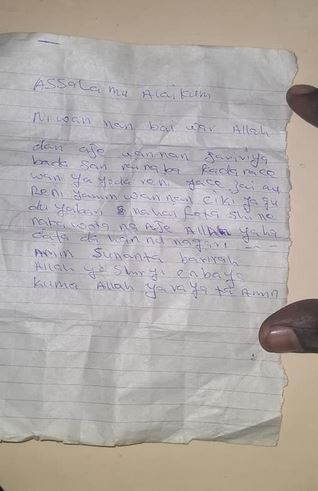 Assalamu Alai,kum
Niwan nan bai war Allah
dan aje wannan Jaririya
bada san raina ba Kada
wani ya yada reni yace Jai
Reni yanim wannan ciki
du yakari & na haifata shi ne
nata wata na aje Allah yaba
da nairna nagari - -
Amin Sunanta barirah
Allah ya Shirya enbaya
kuma Allah ya raya ta Amin